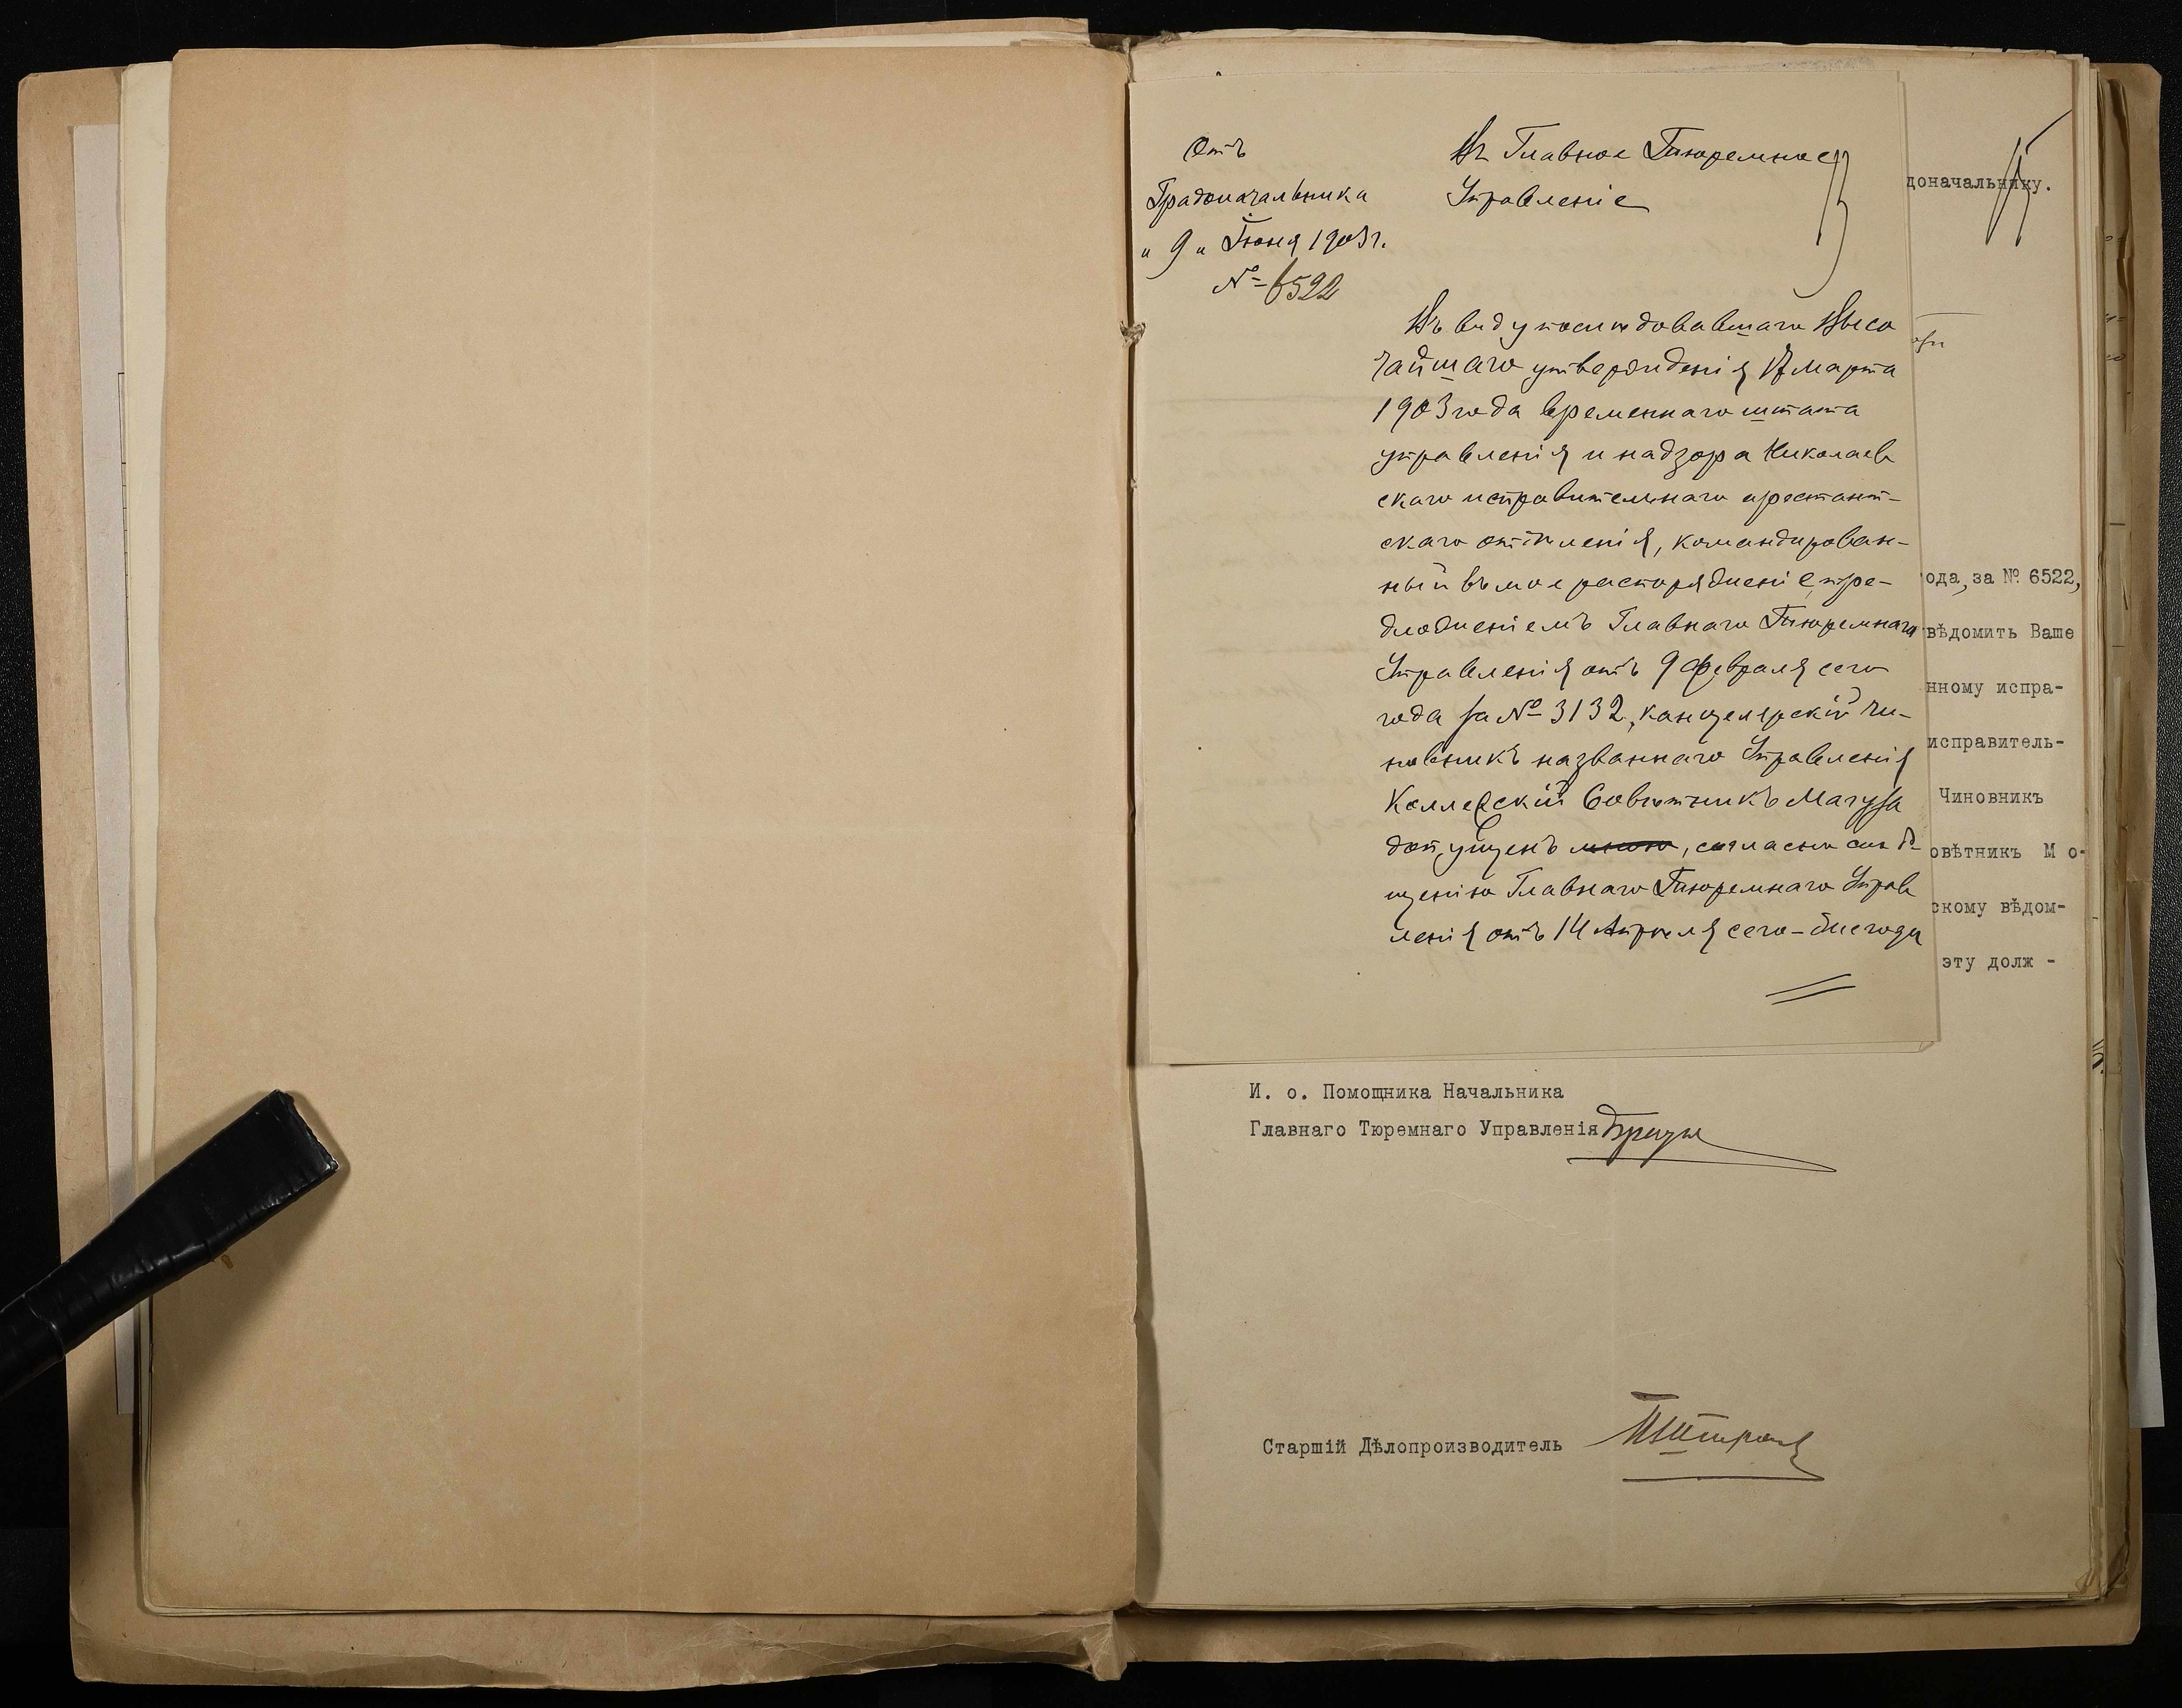 Отъ
Градоначальника
„ 9 „ Іюня 1903 г.
№ 6522
Въ Главное Тюремное
Управленіе
Въ виду послѣдовавшаго Высо
чайшаго утвержденія 17 Марта
1903 года временнаго штата
управленія и надзора Николаев
скаго исправительнаго арестант-
скаго отдѣленія, командирован-
ный въ мое распоряженіе, пре-
дложеніемъ Главнаго Тюремнаго
Управленія отъ 9 Февраля сего
года за № 3132, канцелярскій чи-
новникъ названнаго Управленія
Коллежскій Совѣтникъ Магуза
допущенъ мною, согласно сооб-
щенію Главнаго Тюремнаго Управ
ленія отъ 14 Апрѣля сего-же года
доначальнику.
ода, за № 6522,
вѣдомить Ваше
нному испра-
исправитель-
Чиновникъ
овѣтникъ М о-
скому вѣдом-
эту долж -
И. о. Помощника Начальника
Главнаго Тюремнаго Управленія
Старшій Дѣлопроизводитель